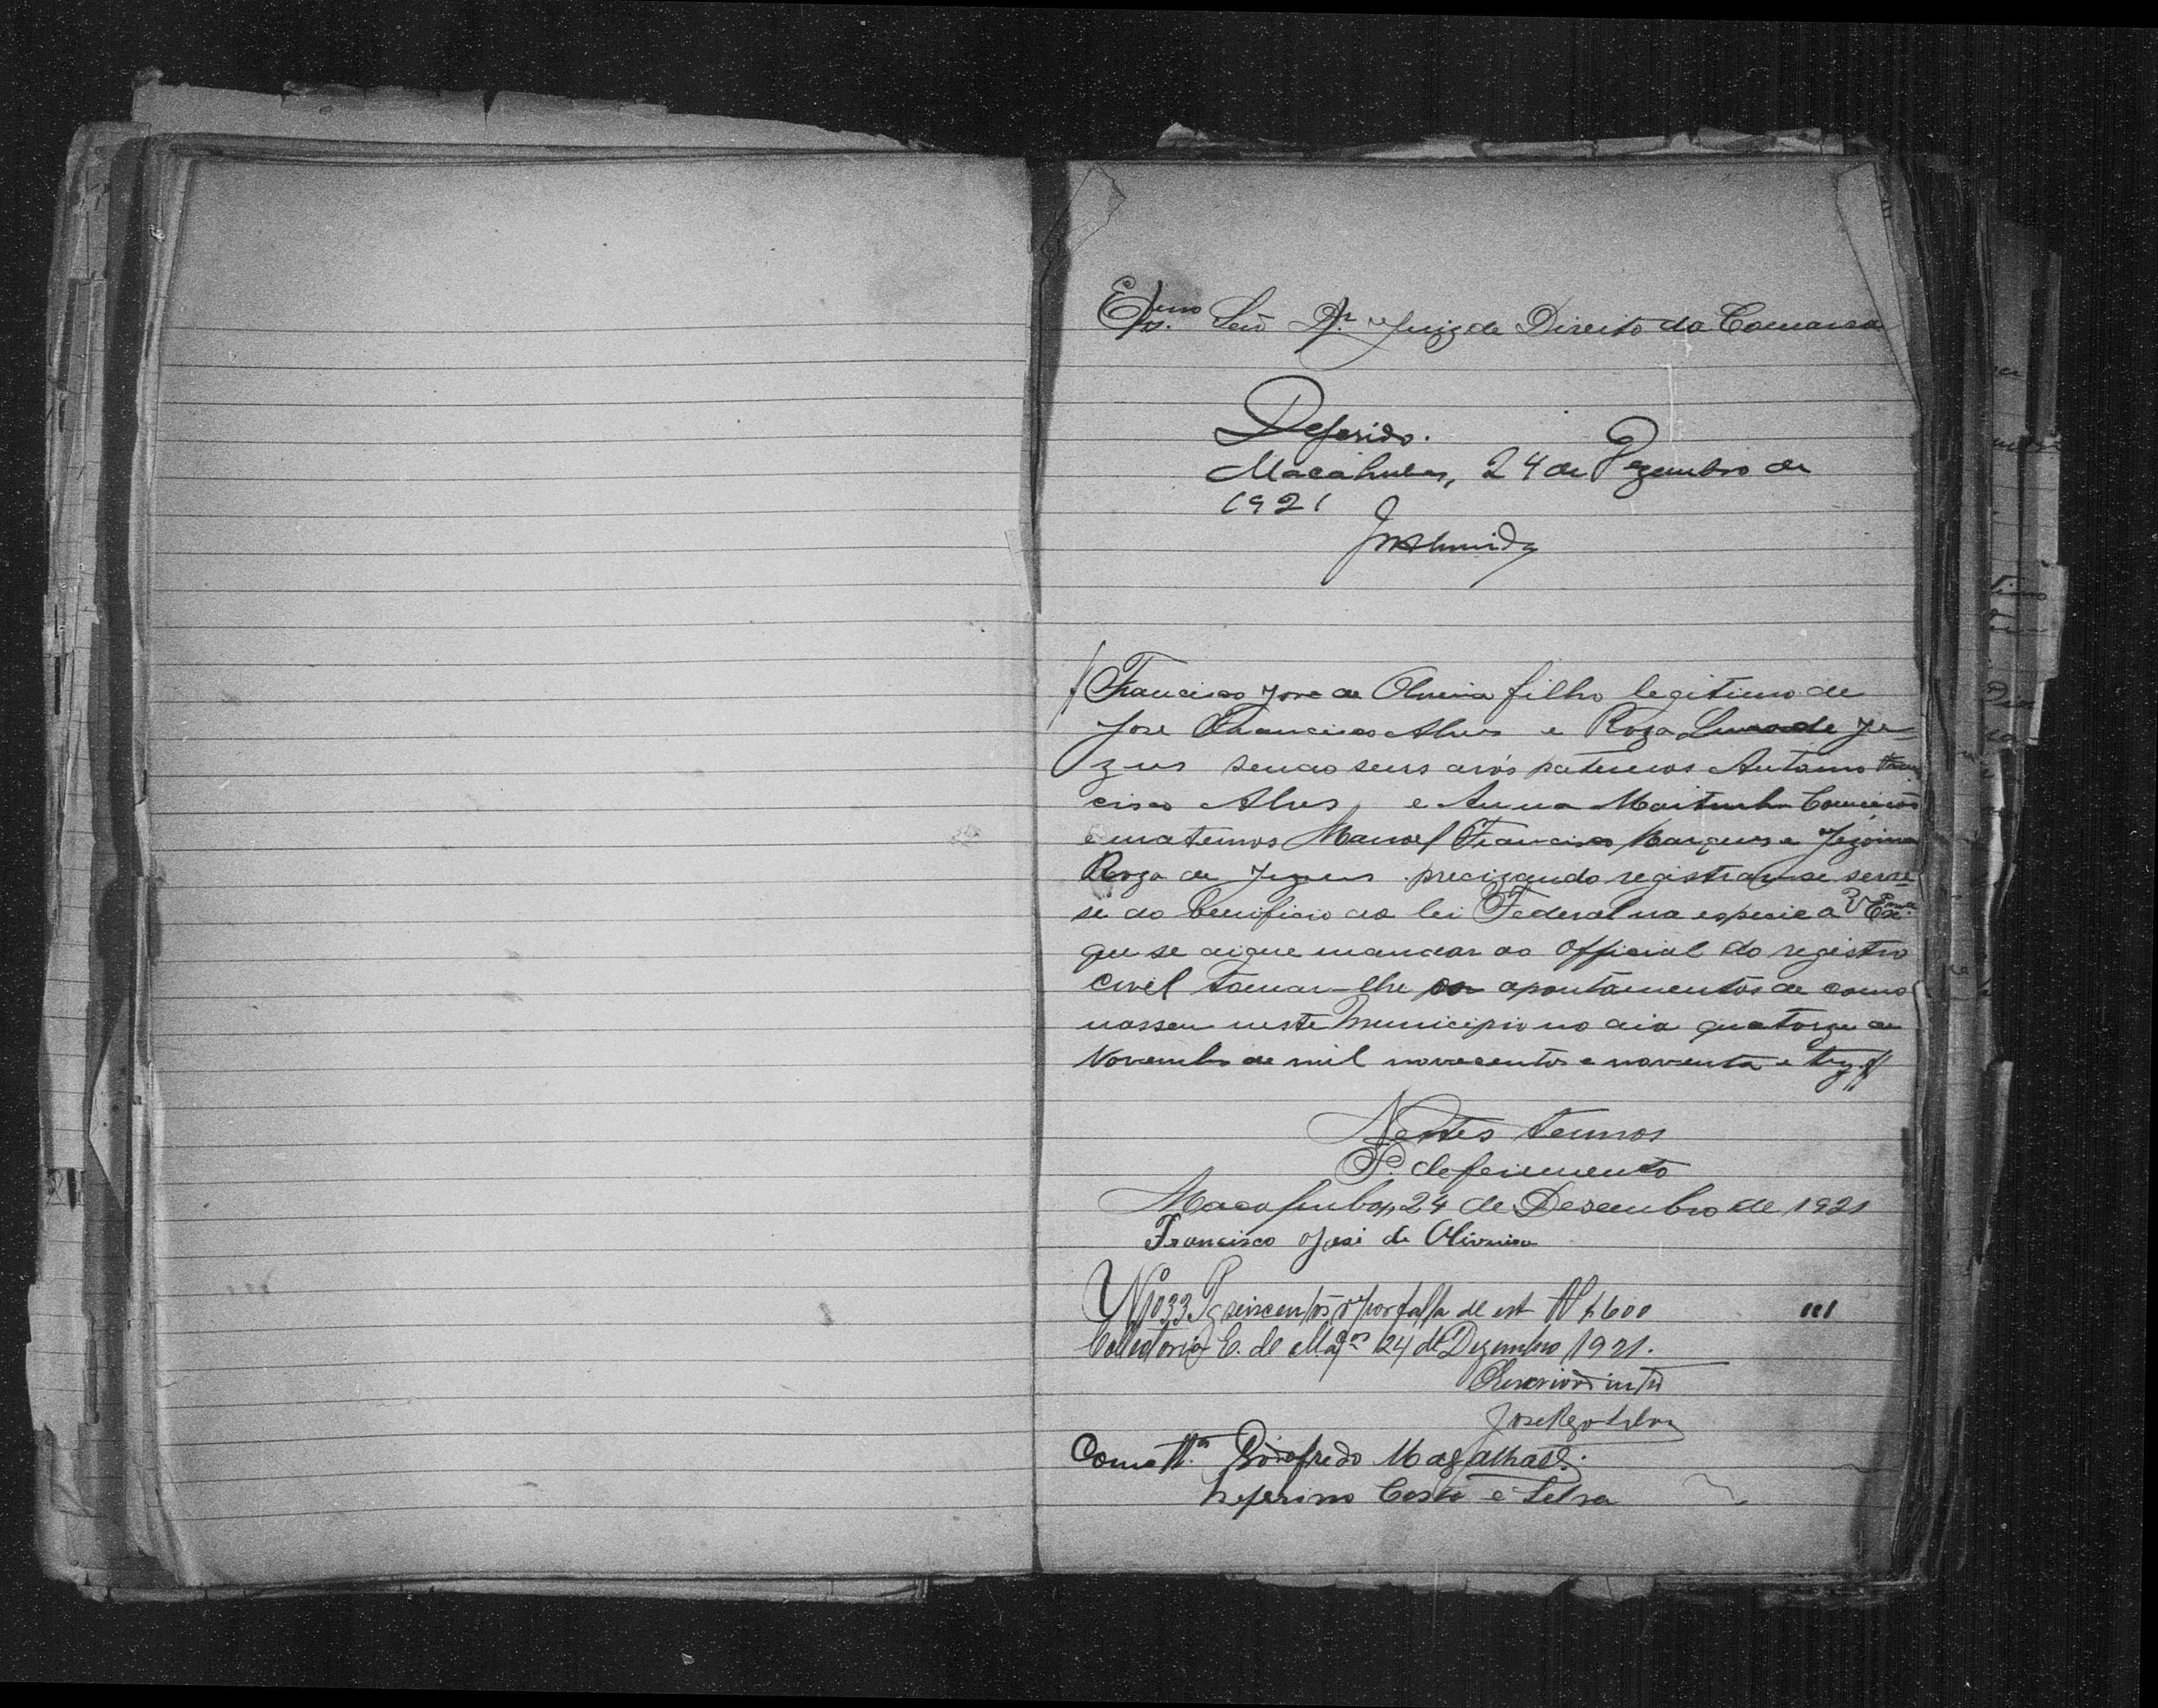 Exmo Senr Dr Juiz de Direito da Comarca
Deferido.
Macahubas, 24 de Dezembro de
1921
JMAlmeida
Francisco Jose de Oliveira filho legitimo de
Jose Francisco Alves e Roza de Je
zus sendo seus avós paternos Antonio Fran
cisco Alves, e Anna Conceicão
e maternos Manoel Francisco Marques e
Roza de Jezus precizando registrar-se
se do benificio da lei Federal na especie a V Excia
que se digne mandar ao Official do registro
Civel tomar-lhe os apontamentos de como
nasseu neste Municipio no dia quatorze de
Novembro de mil novecentos e noventa e trez
Nestes termos
P. deferimento
Macahubas, 24 de Desembro de 1921
Francisco José de Oliveira
Nº 33 Pg seiscentos rs por falta de est $600
Collectoria E. de Macas 24 de Dezembro 1921.
O Escrivão intº
Como ttª Godofredo Magalhães.
Zeferino Costa e Silva